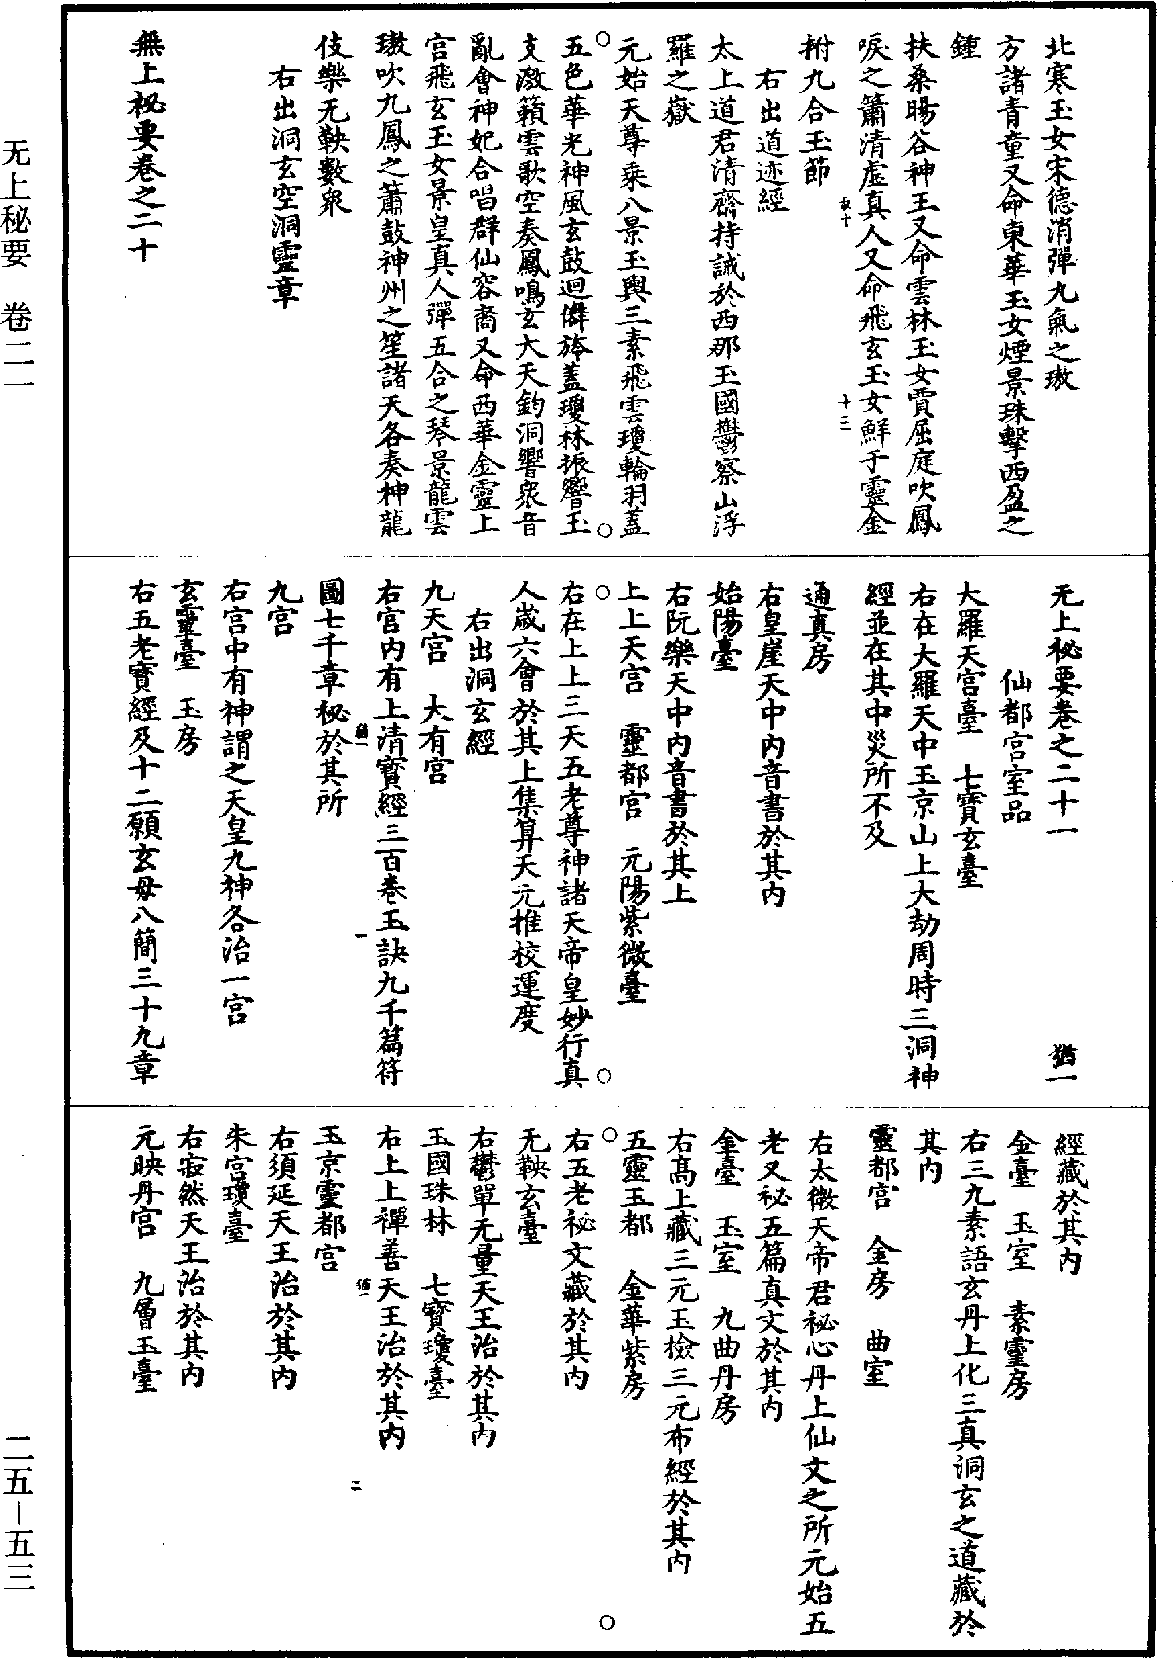 北寒玉女宋德消彈九氣之璈
方諸青童又命東華玉女煙景珠擊西盈之
鍾
扶桑暘谷神王又命雲林玉女賈屈庭吹鳳
唳之簫清虛真人又命飛玄玉女鮮于靈金
拊九合玉節
右出道迹經
太上道君清齋持誡於西那玉國鬱察山浮
羅之嶽
元始天尊乘八景玉輿三素飛雲瓊輪羽蓋
五色華光神風玄鼓迴儛旍蓋瓊林振響玉
支激籟雲歌空奏鳳鳴玄大天鈞洞響衆音
亂會神妃合唱群仙容裔又命西華金靈上
宫飛玄玉女景皇真人彈五合之琴景龍雲
璈吹九鳳之簫鼓神州之笙諸天各奏神龍
伎樂无鞅數衆
右出洞玄空洞靈章
無上秘要卷之二十
十三
无上秘要卷之二十一 猶一
仙都宫室品
大羅天宫臺 七寶玄臺
右在大羅天中玉京山上大劫周時三洞神
經並在其中災所不及
通真房
右皇崖天中内音書於其内
始陽臺
右阮樂天中内音書於其上
上上天宫 靈都宫 元陽紫微臺
右在上上三天五老尊神諸天帝皇妙行真
人歲六會於其上集算天元推校運度
右出洞玄經
九天宫 大有宫
右宫内有上清寶經三百卷玉訣九千篇符
猶一 一
圖七千章秘於其所
九宫
右宫中有神謂之天皇九神各治一宫
玄靈臺 玉房
右五老寶經及十二願玄母八簡三十九章
經藏於其内
金臺 玉室 素靈房
右三九素語玄丹上化三真洞玄之道藏於
其内
靈都宫 金房 曲室
右太微天帝君秘心丹上仙文之所元始五
老又秘五篇真文於其内
金臺 玉室 九曲丹房
右高上藏三元玉檢三元布經於其内
五靈玉都 金華紫房
右五老秘文藏於其内
无鞅玄臺
右鬱單无量天王治於其内
玉國珠林 七寶瓊臺
右上上禪善天王治於其内
猶一 二
玉京靈都宫
右須延天王治於其内
朱宫瓊臺
右寂然天王治於其内
元映丹宫 九層玉臺
无上秘要 卷二一
二五—五三